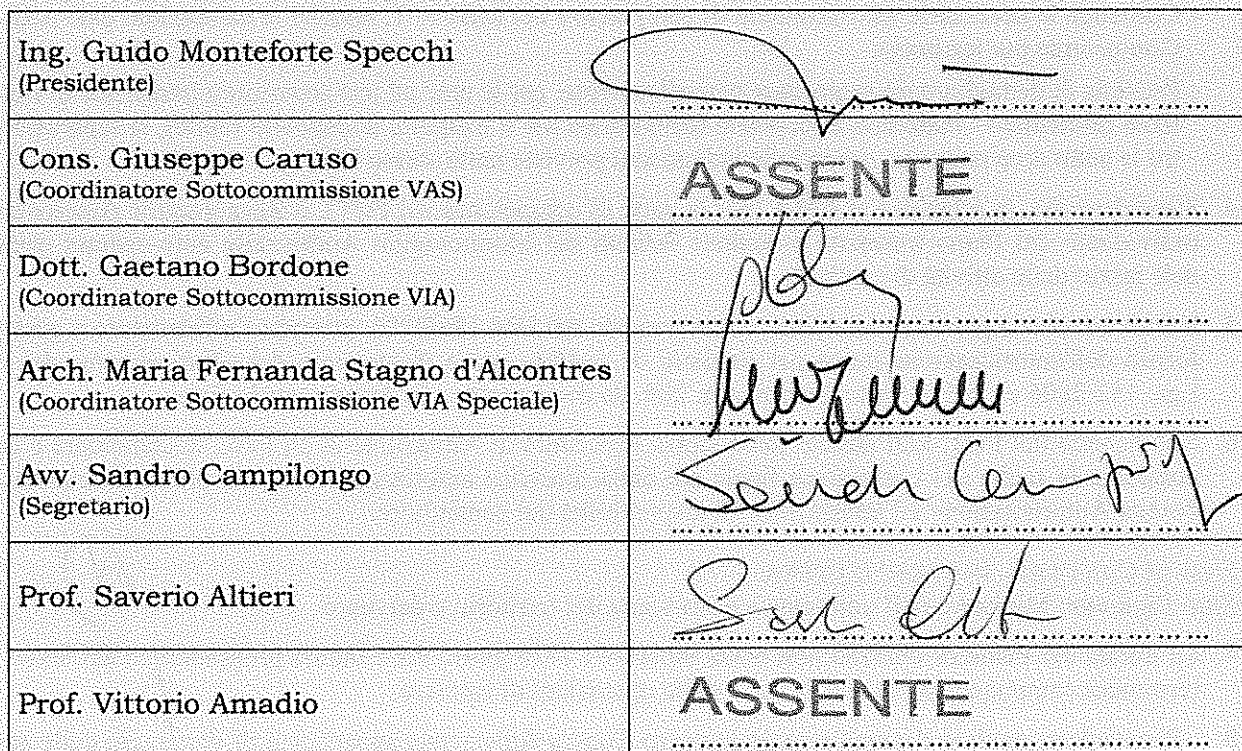 Ing. Guido Monteforte Specchi
(Presidente)
Cons. Giuseppe Caruso
(Coordinatore Sottocommissione VAS)
ASSENTE
Dott. Gaetano Bordone
(Coordinatore Sottocommissione VIA)
Arch. Maria Fernanda Stagno d'Alcontres
(Coordinatore Sottocommissione VIA Speciale)
Avv. Sandro Campilongo
(Segretario)
Prof. Saverio Altieri
Prof. Vittorio Amadio
ASSENTE